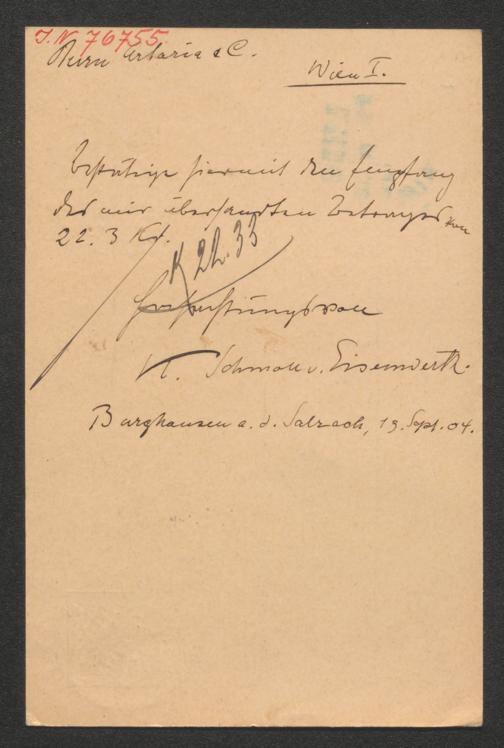 I.N. 76755
Herrn Artaria & C.
Wien I.
Bestätige hiermit den Empfang
des mir übersandten Betrages von
22.3 Kr.
K 22.33
Hochachtungsvoll
K. Schmoll v. Eisenwerth.
Burghausen a. d. Salzach, 19. Sept. 04.